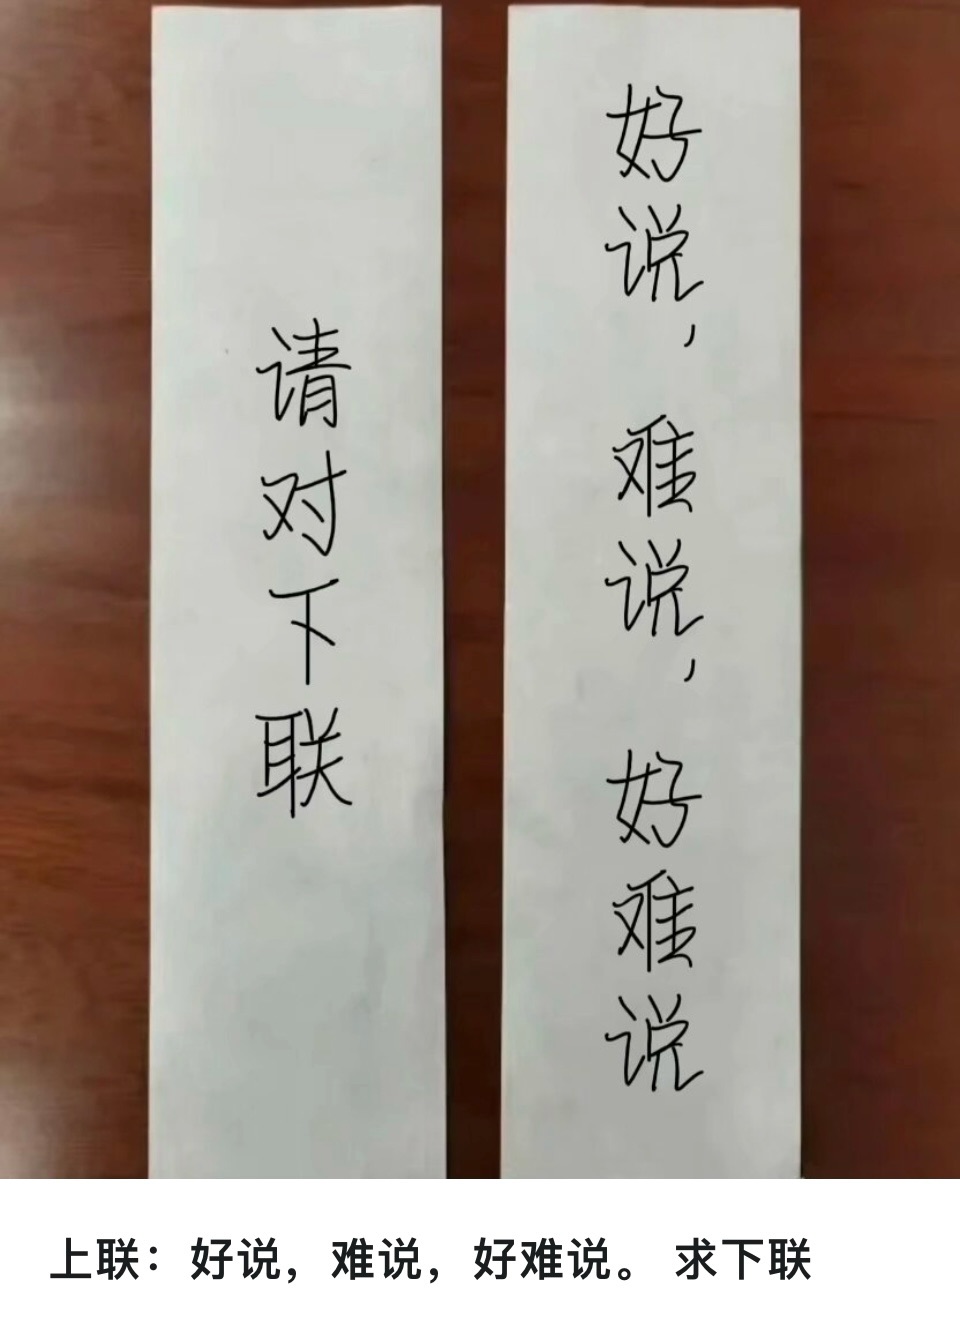 好说，难说，好难说
请对下联
上联：好说，难说，好难说。 求下联